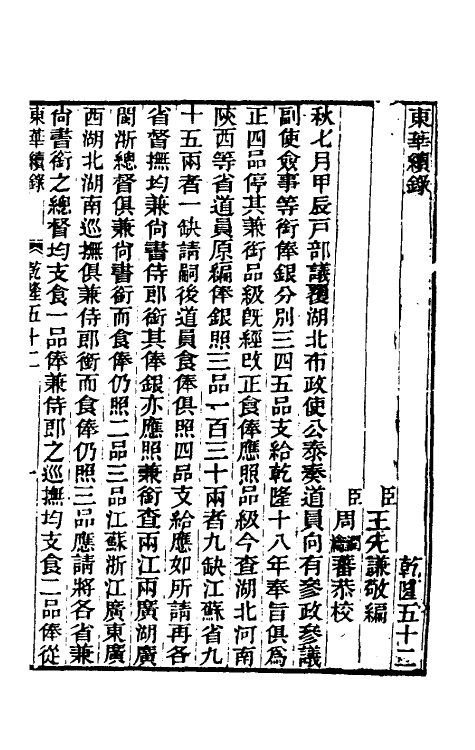 東華續錄
乾隆五十二
臣王先謙敬編
臣周潤蕃恭校
秋七月甲辰戸部議覆湖北布政使公泰奏道員向有參政參議
副使僉事等銜俸銀分別三四五品支給乾隆十八年奉旨俱爲
正四品停其兼銜品級旣經改正食俸應照品級今查湖北河南
陝西等省道員原編俸銀照三品一百三十兩者九缺江蘇省九
十五兩者一缺請嗣後道員食俸俱照四品支給應如所請再各
省督撫均兼尙書侍郎銜其俸銀亦應照兼銜查兩江兩廣湖廣
閩浙總督俱兼尙書銜而食俸仍照二品三品江蘇浙江廣東廣
西湖北湖南巡撫俱兼侍郎銜而食俸仍照三品應請將各省兼
尙書銜之總督均支食一品俸兼侍郎之巡撫均支食二品俸從
東華續錄 乾隆五十二 一